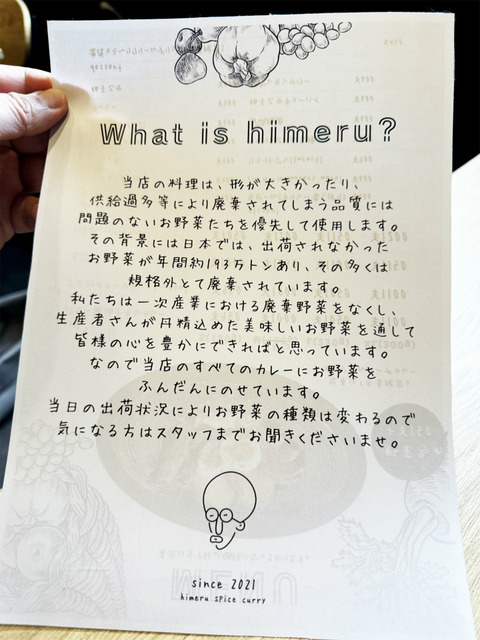 What is himeru?
当店の料理は、形が大きかったり、
供給過多等により廃棄されてしまう品質には
問題のないお野菜たちを優先して使用します。
その背景には日本では、出荷されなかった
お野菜が年間約193万トンあり、その多くは
規格外として廃棄されています。
私たちは一次産業における廃棄野菜をなくし、
生産者さんが丹精込めた美味しいお野菜を通して
皆様の心を豊かにできればと思っています。
なので当店のすべてのカレーにお野菜を
ふんだんにのせています。
当日の出荷状況によりお野菜の種類は変わるので
気になる方はスタッフまでお聞きくださいませ。
since 2021
himeru spice curry
MENU